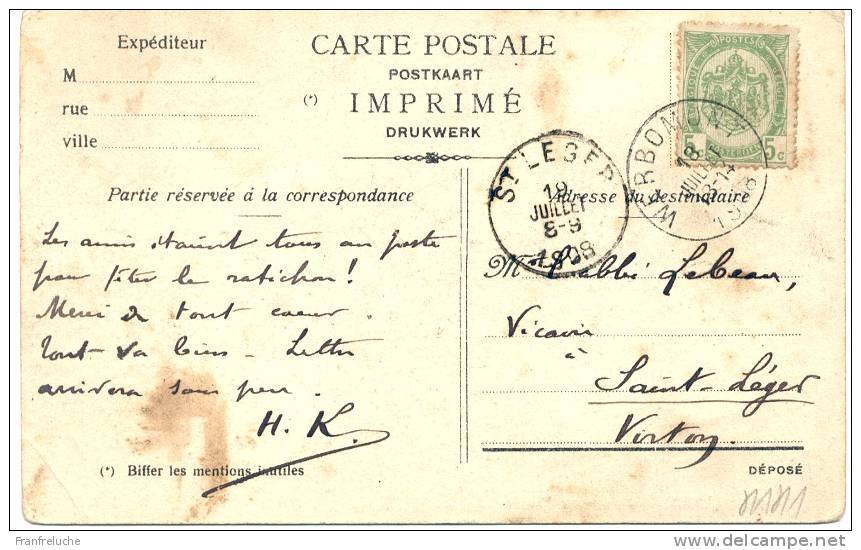 Expéditeur
M
rue
ville
CARTE POSTALE
POSTKAART
(*) IMPRIMÉ
DRUKWERK
POSTES
5c 5c
ST LEGER
19
JUILLET
8-9
1908
WERBOMONT
18
JUILLET
13-14
1908
Partie réservée à la correspondance
Adresse du destinataire
Les amis étaient tous au poste
pour fêter le ratichon!
Merci de tout coeur.
Tout va bien - Lettre
arrivera sous peu.
H. K.
M l'abbé Lebeau,
Vicaire
à
Saint-Léger
Virton.
(*) Biffer les mentions inutiles
DÉPOSÉ
Franfreluche
delcampe.net